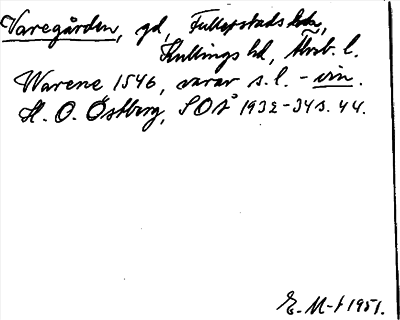 Varegården, gd, Fullestads sn,
Kullings hd, Älvsb. l.
Warene 1546, varar s. l. - vin.
H. O. Östberg, SOÅ 1932-34 s. 44.
E. M-t 1951.